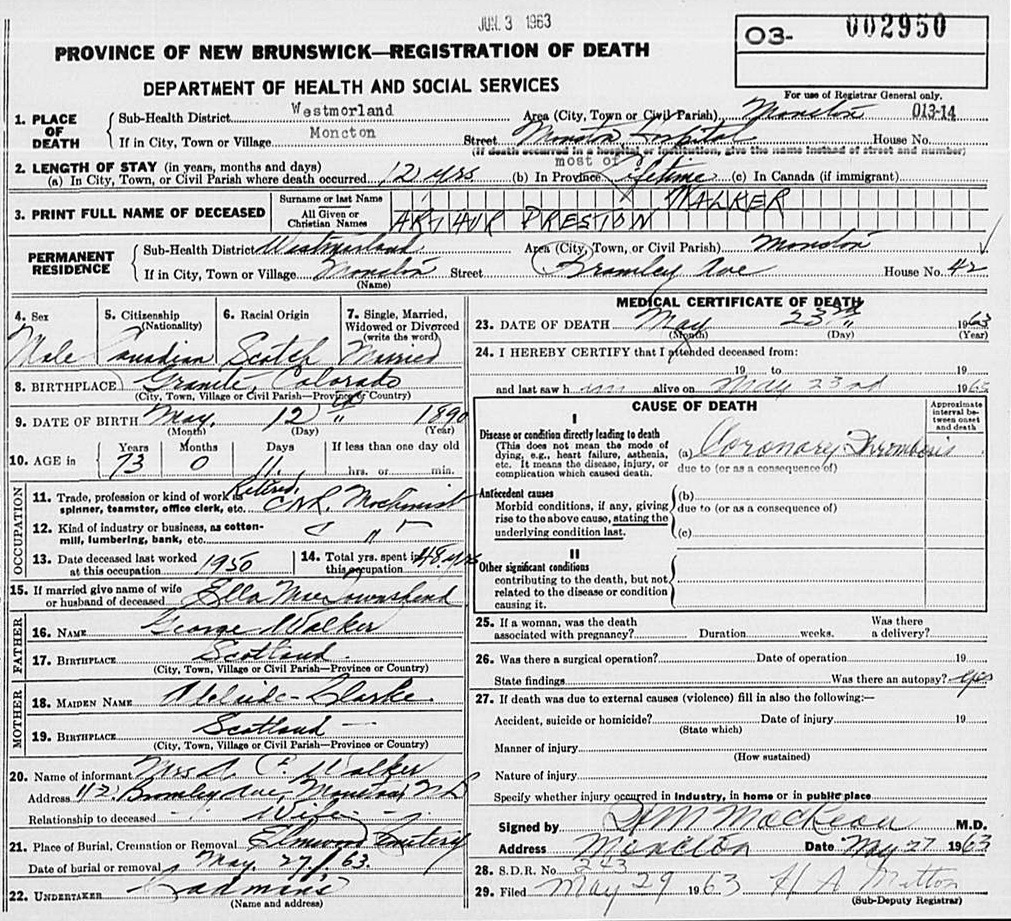 JUN. 3 1963
03- 002950
PROVINCE OF NEW BRUNSWICK—REGISTRATION OF DEATH
DEPARTMENT OF HEALTH AND SOCIAL SERVICES
For use of Registrar General only.
013-14
1. PLACE OF DEATH
Sub-Health District Westmorland Area (City, Town or Civil Parish) Moncton
If in City, Town or Village Moncton Street Moncton Hospital House No.
(If death occurred in a hospital or institution, give the name instead of street and number)
2. LENGTH OF STAY (in years, months and days)
most of
(a) In City, Town, or Civil Parish where death occurred 12 yrs (b) In Province Lifetime (c) In Canada (if immigrant)
3. PRINT FULL NAME OF DECEASED
Surname or last Name WALKER
All Given or Christian Names ARTHUR PRESTON
PERMANENT RESIDENCE
Sub-Health District Westmorland Area (City, Town, or Civil Parish) Moncton
If in City, Town or Village Moncton Street Bromley Ave House No. 42
(Name)
4. Sex Male
5. Citizenship (Nationality) Canadian
6. Racial Origin Scotch
7. Single, Married, Widowed or Divorced (write the word) Married
8. BIRTHPLACE Granite, Colorado
(City, Town, Village or Civil Parish—Province or Country)
9. DATE OF BIRTH May, 12th 1890
(Month) (Day) (Year)
10. AGE in Years 73 Months 0 Days 11. If less than one day old hrs. or min.
OCCUPATION
11. Trade, profession or kind of work as spinner, teamster, office clerk, etc. Retired, CNR, Machinist
12. Kind of industry or business, as cotton-mill, lumbering, bank, etc. "
13. Date deceased last worked at this occupation 1950
14. Total yrs. spent in this occupation 48 yrs
15. If married give name of wife or husband of deceased Ella Mae Townshend
FATHER
16. NAME George Walker
17. BIRTHPLACE Scotland.
(City, Town, Village or Civil Parish—Province or Country)
MOTHER
18. MAIDEN NAME Clarke
19. BIRTHPLACE Scotland
(City, Town, Village or Civil Parish—Province or Country)
20. Name of informant Mrs A. P. Walker
Address Bromley Ave Moncton, N.B.
Relationship to deceased Wife
21. Place of Burial, Cremation or Removal Elmwood Cemetery
Date of burial or removal May, 27/63.
22. UNDERTAKER
(Name and address)
MEDICAL CERTIFICATE OF DEATH
23. DATE OF DEATH May 23rd 1963
(Month) (Day) (Year)
24. I HEREBY CERTIFY that I attended deceased from:
19 to 19
and last saw h im alive on May 23rd 1963
CAUSE OF DEATH
Approximate interval between onset and death
I
Disease or condition directly leading to death
(This does not mean the mode of dying, e.g., heart failure, asthenia, etc. It means the disease, injury, or complication which caused death.
(a) Coronary Thrombosis
due to (or as a consequence of)
Antecedent causes
Morbid conditions, if any, giving rise to the above cause, stating the underlying condition last.
(b)
due to (or as a consequence of)
(c)
II
Other significant conditions
contributing to the death, but not related to the disease or condition causing it.
25. If a woman, was the death associated with pregnancy? Duration weeks. Was there a delivery?
26. Was there a surgical operation? Date of operation 19
State findings Was there an autopsy? yes
27. If death was due to external causes (violence) fill in also the following:—
Accident, suicide or homicide? Date of injury 19
(State which)
Manner of injury
(How sustained)
Nature of injury
Specify whether injury occurred in industry, in home or in public place
Signed by M.D.
Address Moncton Date May 27 1963
28. S.D.R. No. 243
29. Filed May 29 1963 H A Mitton
(Sub-Deputy Registrar)